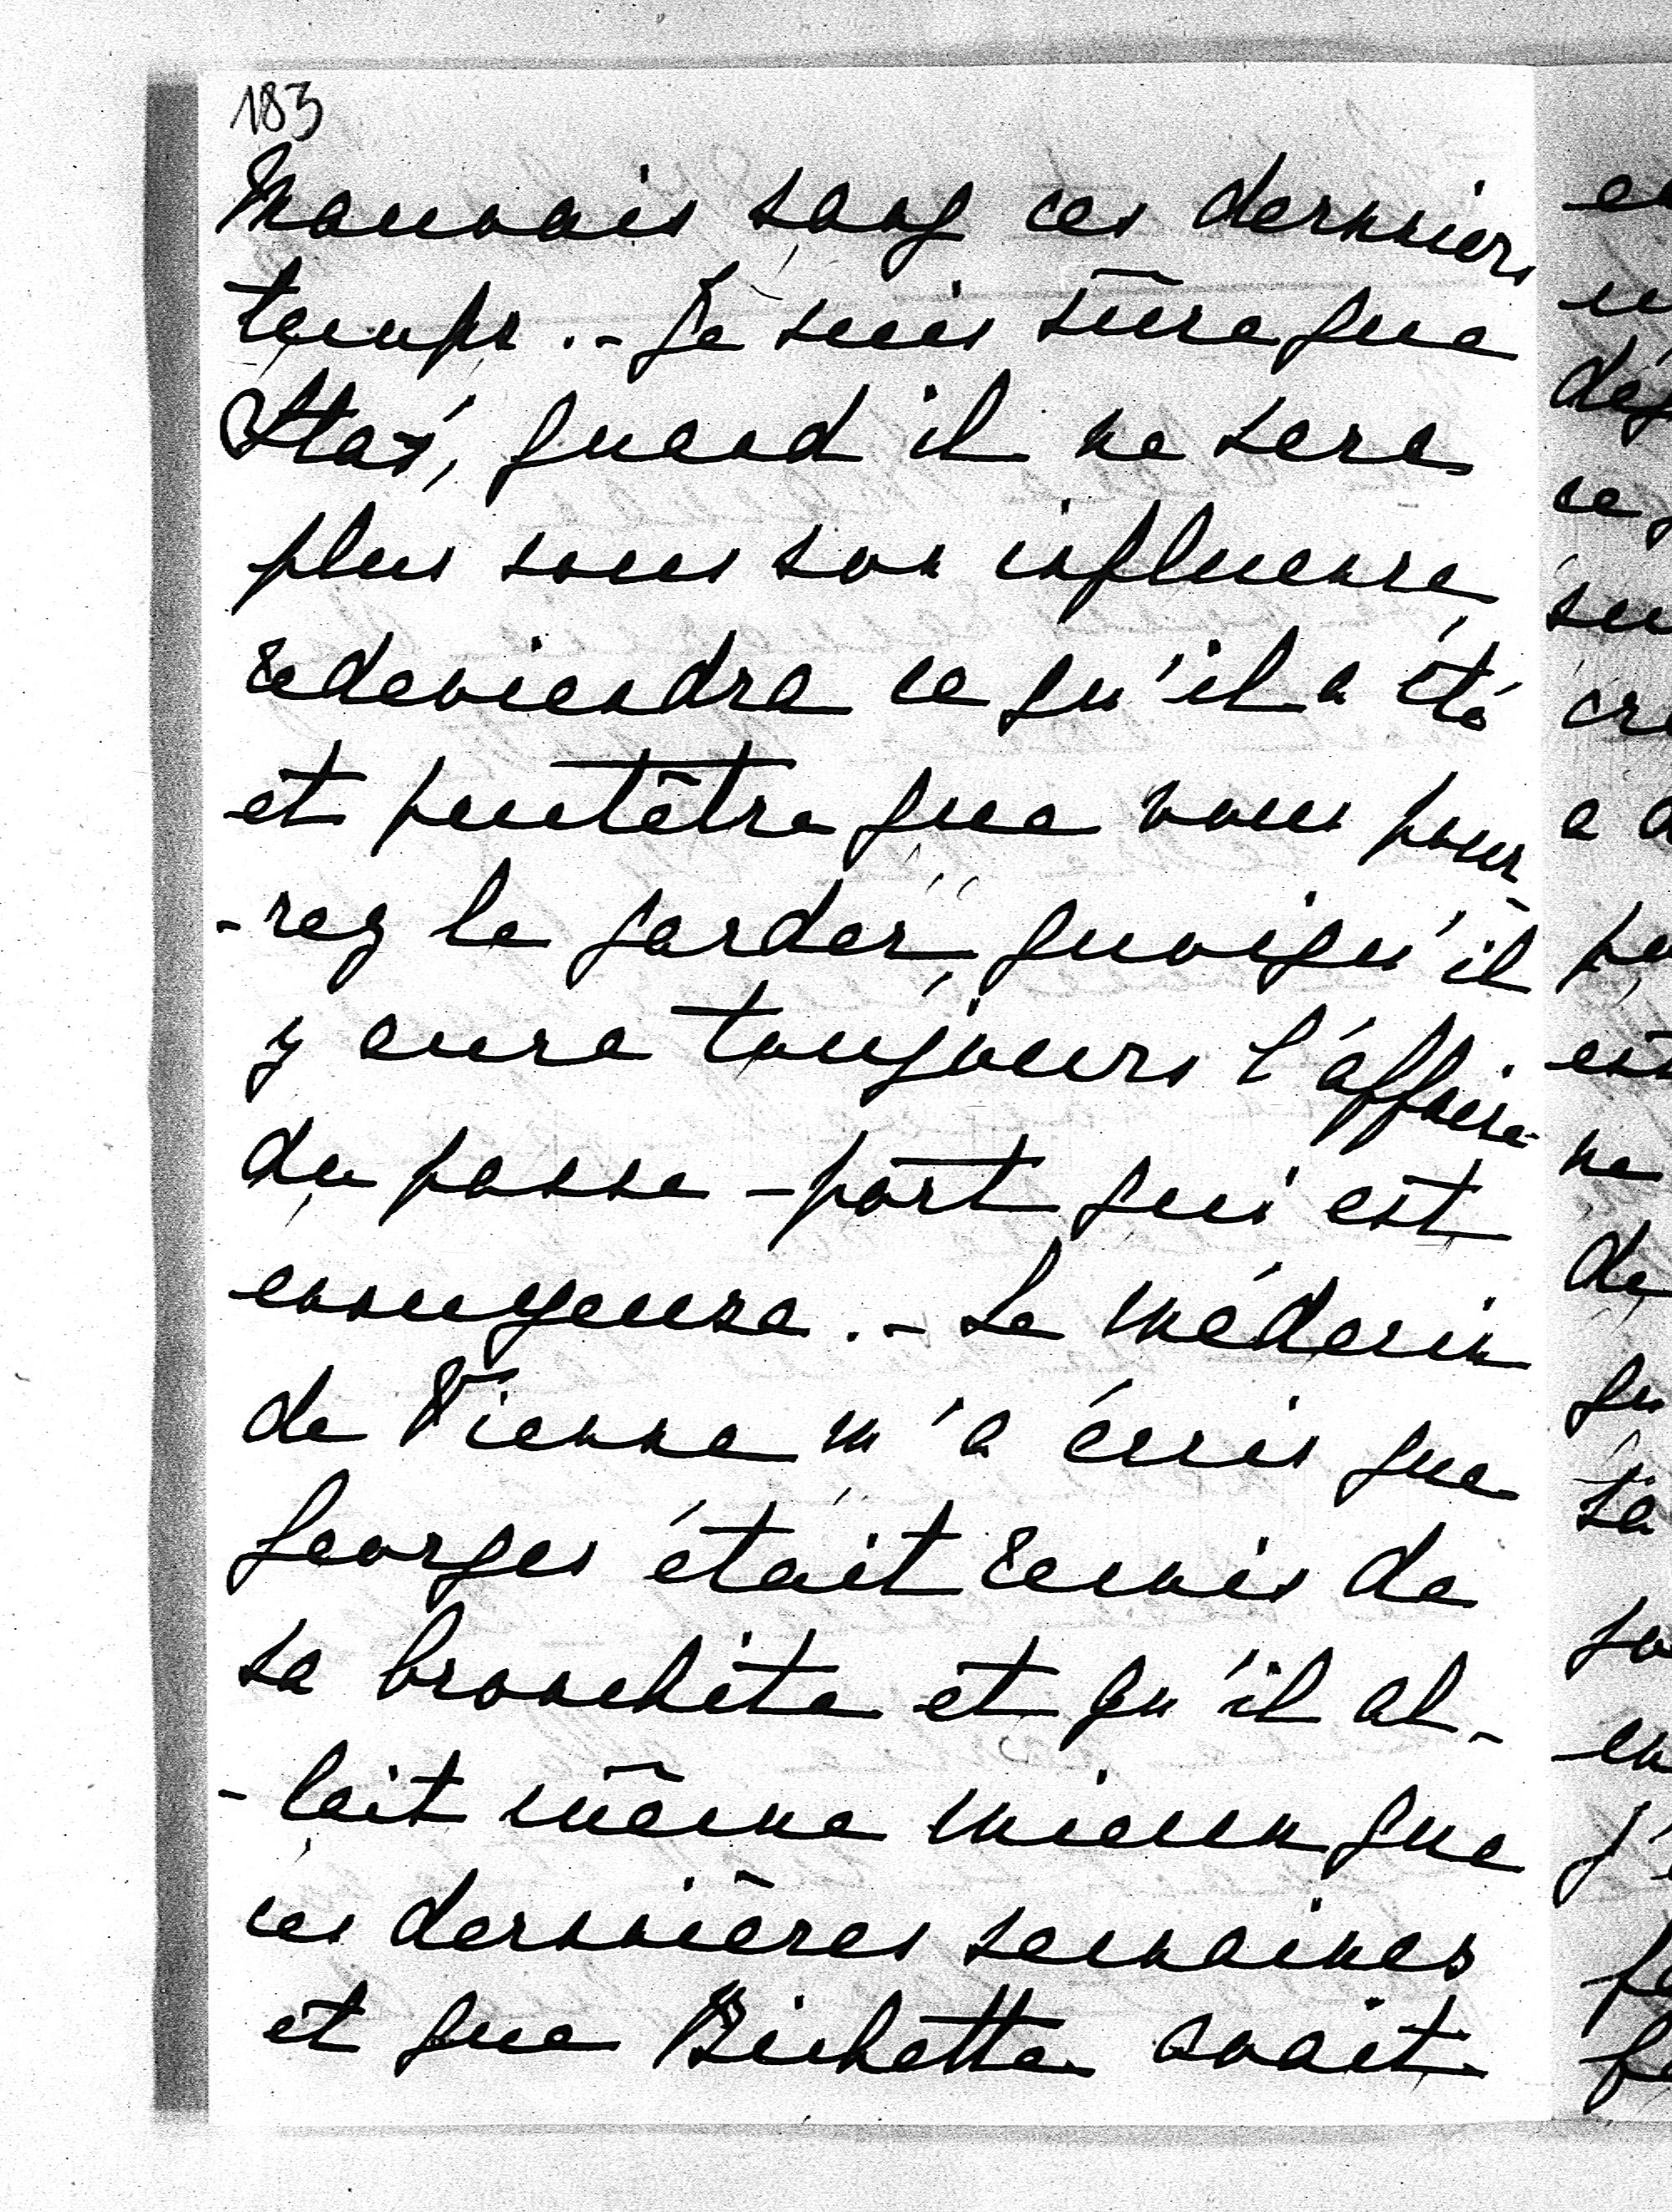 183
Mauvais sang ces derniers
temps.- Je suis sûre que
Staś, quand il ne sera
plus sous son influence,
redeviendra ce qu'il a été
et peutêtre que vous pour-
-rez le garder, quoiqu'il
y aura toujours l'affaire
du passe-port qui est
ennuyeuse.- Le médecin
de Vienne m'a écris que
Georges était remis de
sa bronchite et qu'il al-
-lait même mieux que
ces dernières semaines
et que Bichette avait